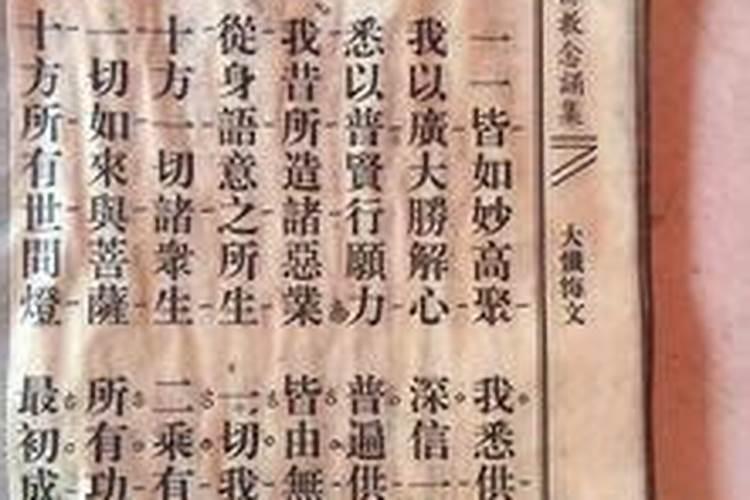 教念誦集
大懺悔文
一一皆如妙高聚 我悉供
我以廣大勝解心 深信一
悉以普賢行願力 普遍供
我昔所造諸惡業 皆由無
從身語意之所生 一切我
十方一切諸衆生 二乘有
一切如來與菩薩 所有功
十方所有世間燈 最初成